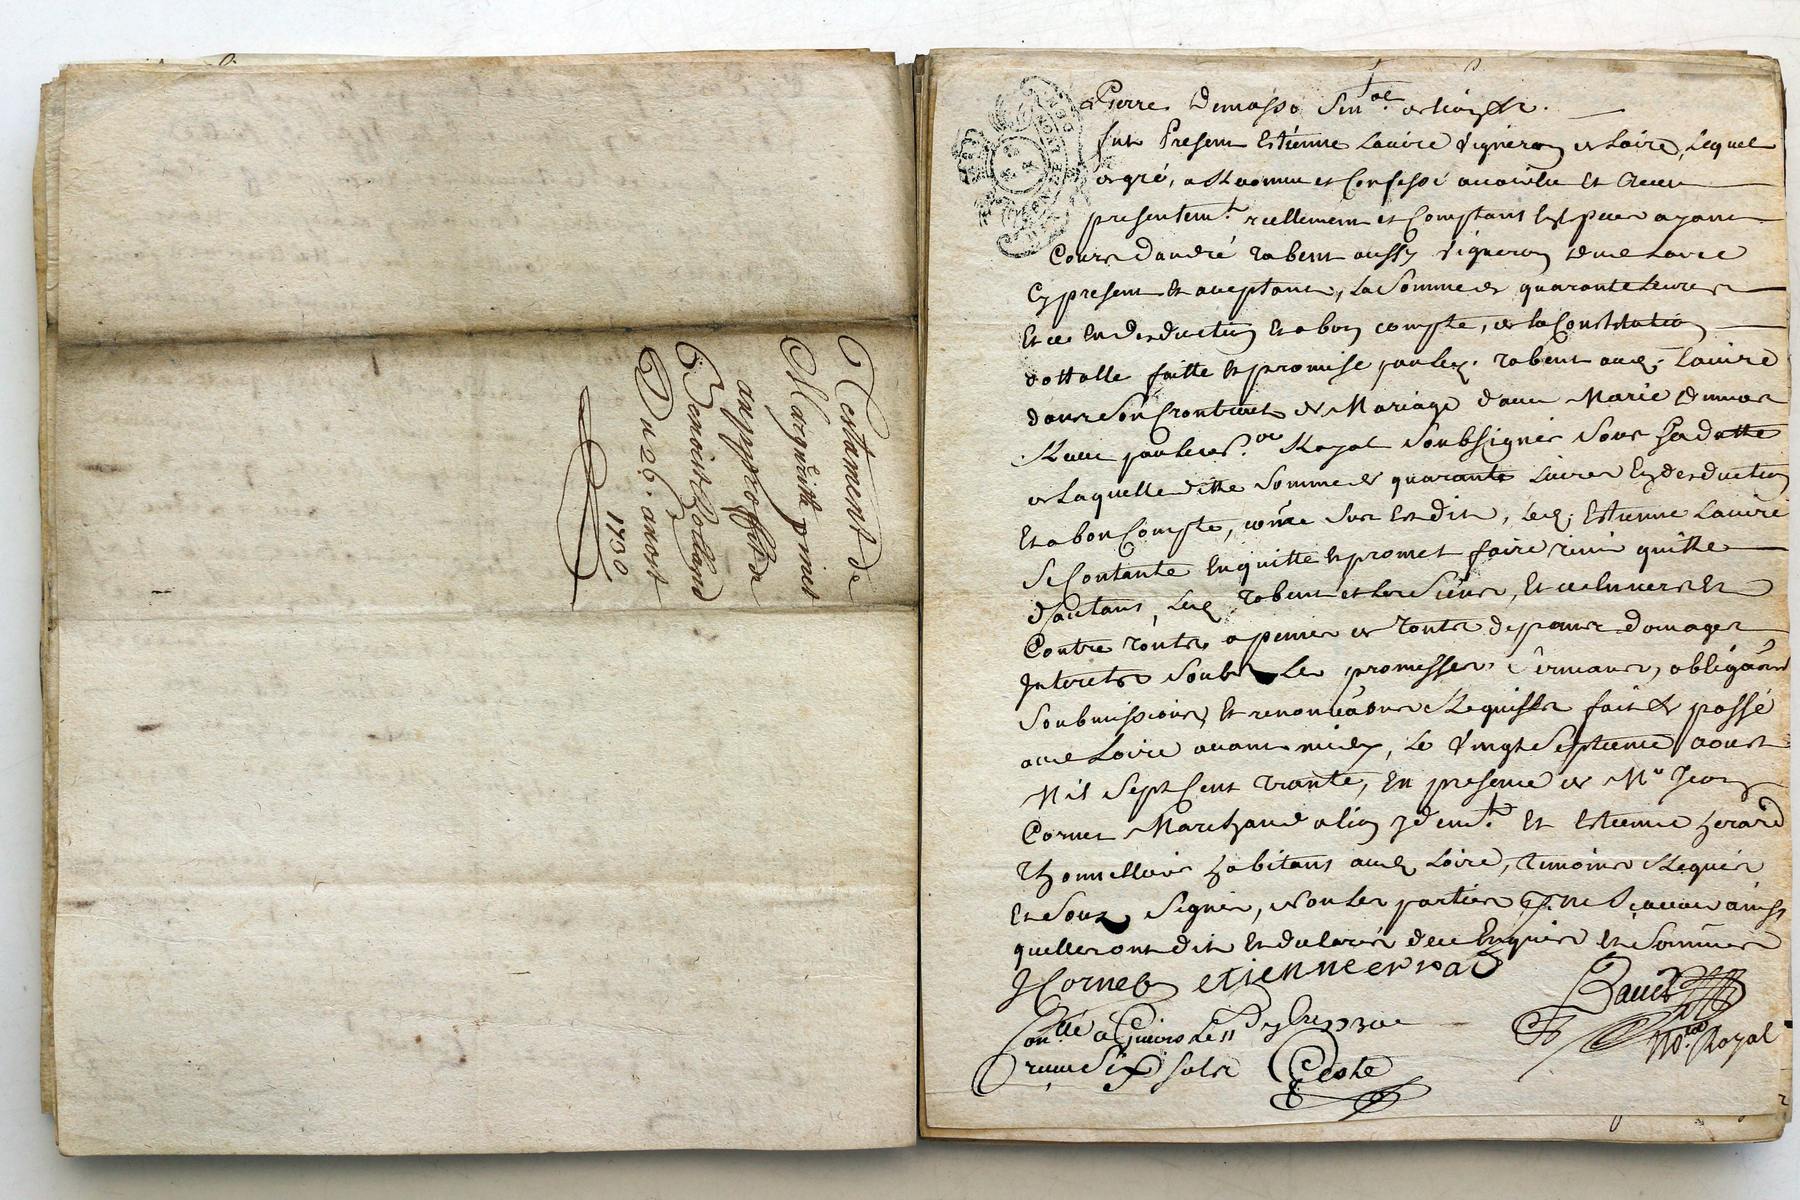 Testament de
Margueritte pinet
au proffit de
Benoist Rolland
Du 26. aoust
1730
Pierre Demasso
fut Present Estienne Lavire Vigneron de Loire, Lequel
de gré, a Reconnu et Confessé avoir eu Et Receu
presentemt. reellement et Comptant Especes ayant
Cours d'andré rabent aussy Vigneron Loire
Cy present Et aceptant, La Somme de quarante Livres
Et ce En Desduction Et a bon compte, de la Constitution
dottalle faitte Et promise par led. rabent aud. Lavire
dans Son Contract de Mariage avec Marie
Receu par le no.re Royal Soubsigné Sous Sa datte
de Laquelle ditte Somme de quarante Livres En desduction
Et a bon Compte, com̃e Sus Est dit, Led. Estienne Lavire
Se Contante En quitte Et promet faire tenir quitte
d'autant, Led. rabent et Les Siens, Et ce Envers Et
Contre touts a peine de touts depens domages
Interets Soubs Les promesses, Serments, obligãons
Soubmissions, Et renonciãons Requises fait & passé
aud. Loire avant midy, Le Vingt Septieme aoust
Mil Sept Cent trante, En presence de Me Jean
Cornet Marchand a lion y demt. Et Estienne herard
thonnellier habitans aud. Loire, temoins Requis
Et Sous Signés, Non Les parties qui ne Sçavent ainsy
qu'elles ont dit Et declarés de ce Enquises Et Sommées
J Cornet etienne erard
Baud
No.re Royal
Con.llé a Givors Le 11 7bre 1730
receu Six sols